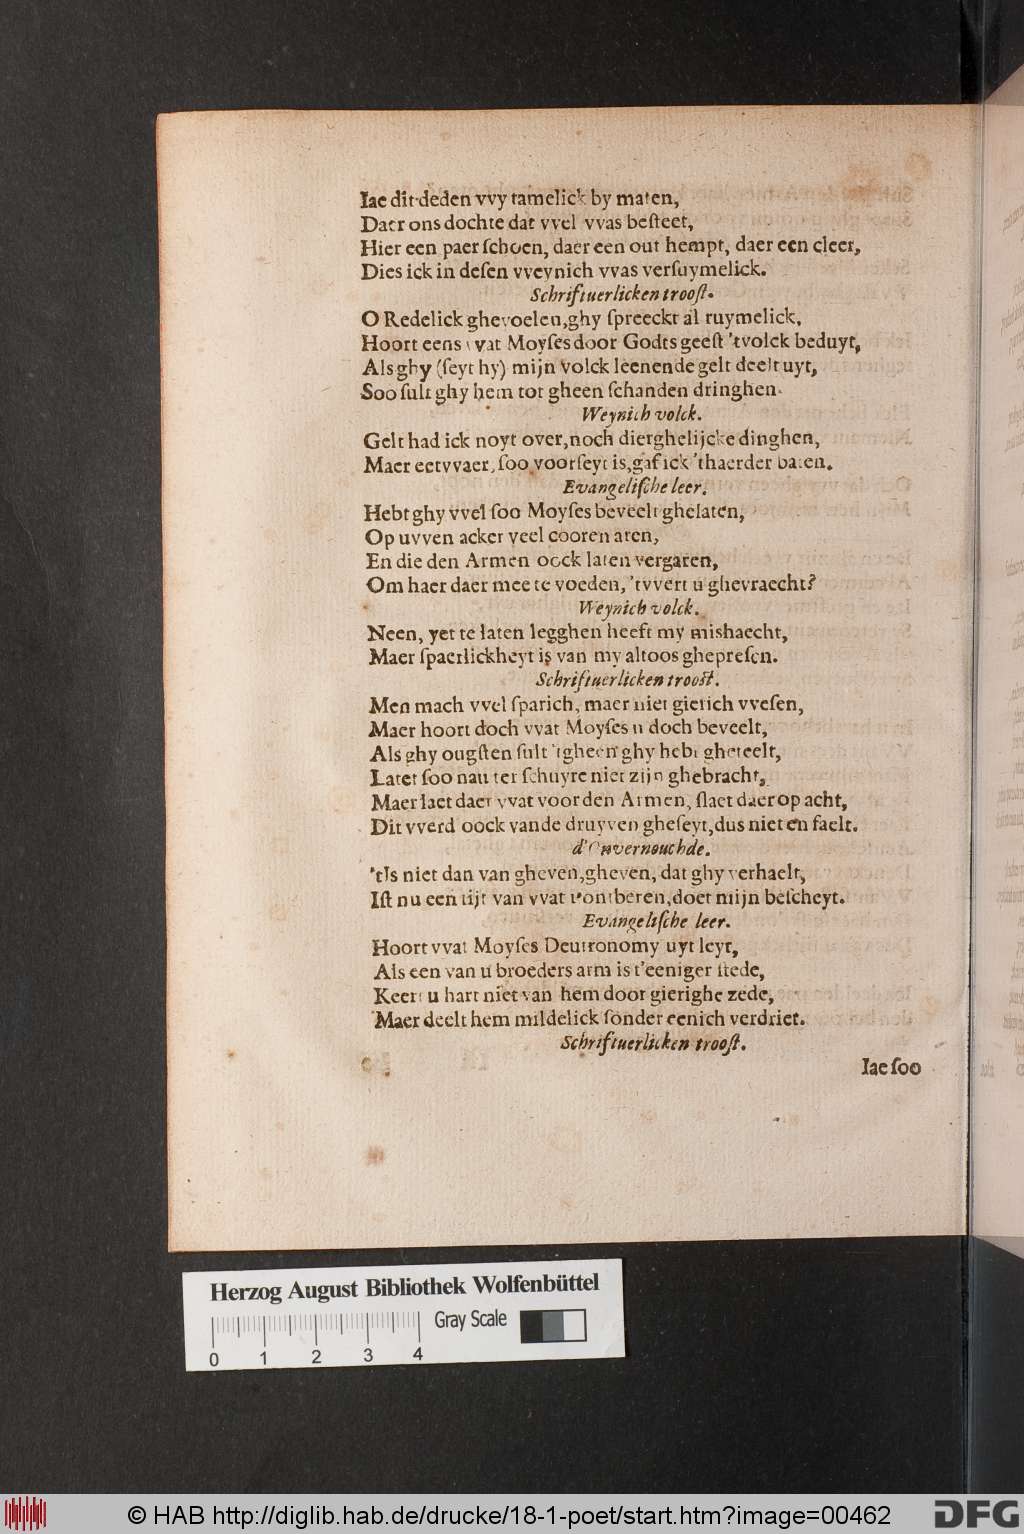 Iae dit deden vvy tamelick by maten,
Daer ons dochte dat vvel vvas beſteet,
Hier een paer ſchoen, daer een out hempt, daer een cleer,
Dies ick in deſen vveynich vvas verſuymelick.
Schriftuerlicken trooſt.
O Redelick ghevoelen, ghy ſpreeckt al ruymelick,
Hoort eens vvat Moyſes door Godts geeſt 'tvolck beduyt,
Als ghy (ſeyt hy) mijn volck leenende gelt deelt uyt,
Soo ſult ghy hem tot gheen ſchanden dringhen.
Weynich volck.
Gelt had ick noyt over, noch dierghelijcke dinghen,
Maer eetvvaer, ſoo voorſeyt is, gaf ick 'thaerder baten.
Evangeliſche leer.
Hebt ghy vvel ſoo Moyſes beveelt ghelaten,
Op uvven acker veel cooren aren,
En die den Armen oock laten vergaren,
Om haer daer mee te voeden, 'tvvert u ghevraecht?
Weynich volck.
Neen, yet te laten legghen heeft my mishaecht,
Maer ſpaerlickheyt is van my altoos ghepreſen.
Schriftuerlicken trooſt.
Men mach vvel ſparich, maer niet gierich vveſen,
Maer hoort doch vvat Moyſes u doch beveelt,
Als ghy ougſten ſult 'tgheen ghy hebt gheteelt,
Latet ſoo nau ter ſchuyre niet zijn ghebracht,
Maer laet daer vvat voor den Armen, ſlaet daer op acht,
Dit vverd oock vande druyven gheſeyt, dus niet en faelt.
d'Onvernouchde.
'tIs niet dan van gheven, gheven, dat ghy verhaelt,
Iſt nu een tijt van vvat t'ontberen, doet mijn beſcheyt.
Evangeliſche leer.
Hoort vvat Moyſes Deutronomy uyt leyt,
Als een van u broeders arm is t'eeniger ſtede,
Keert u hart niet van hem door gierighe zede,
Maer deelt hem mildelick ſonder eenich verdriet.
Schriftuerlicken trooſt.
Iae ſoo
Herzog August Bibliothek Wolfenbüttel
Gray Scale
0 1 2 3 4
© HAB http://diglib.hab.de/drucke/18-1-poet/start.htm?image=00462
DFG